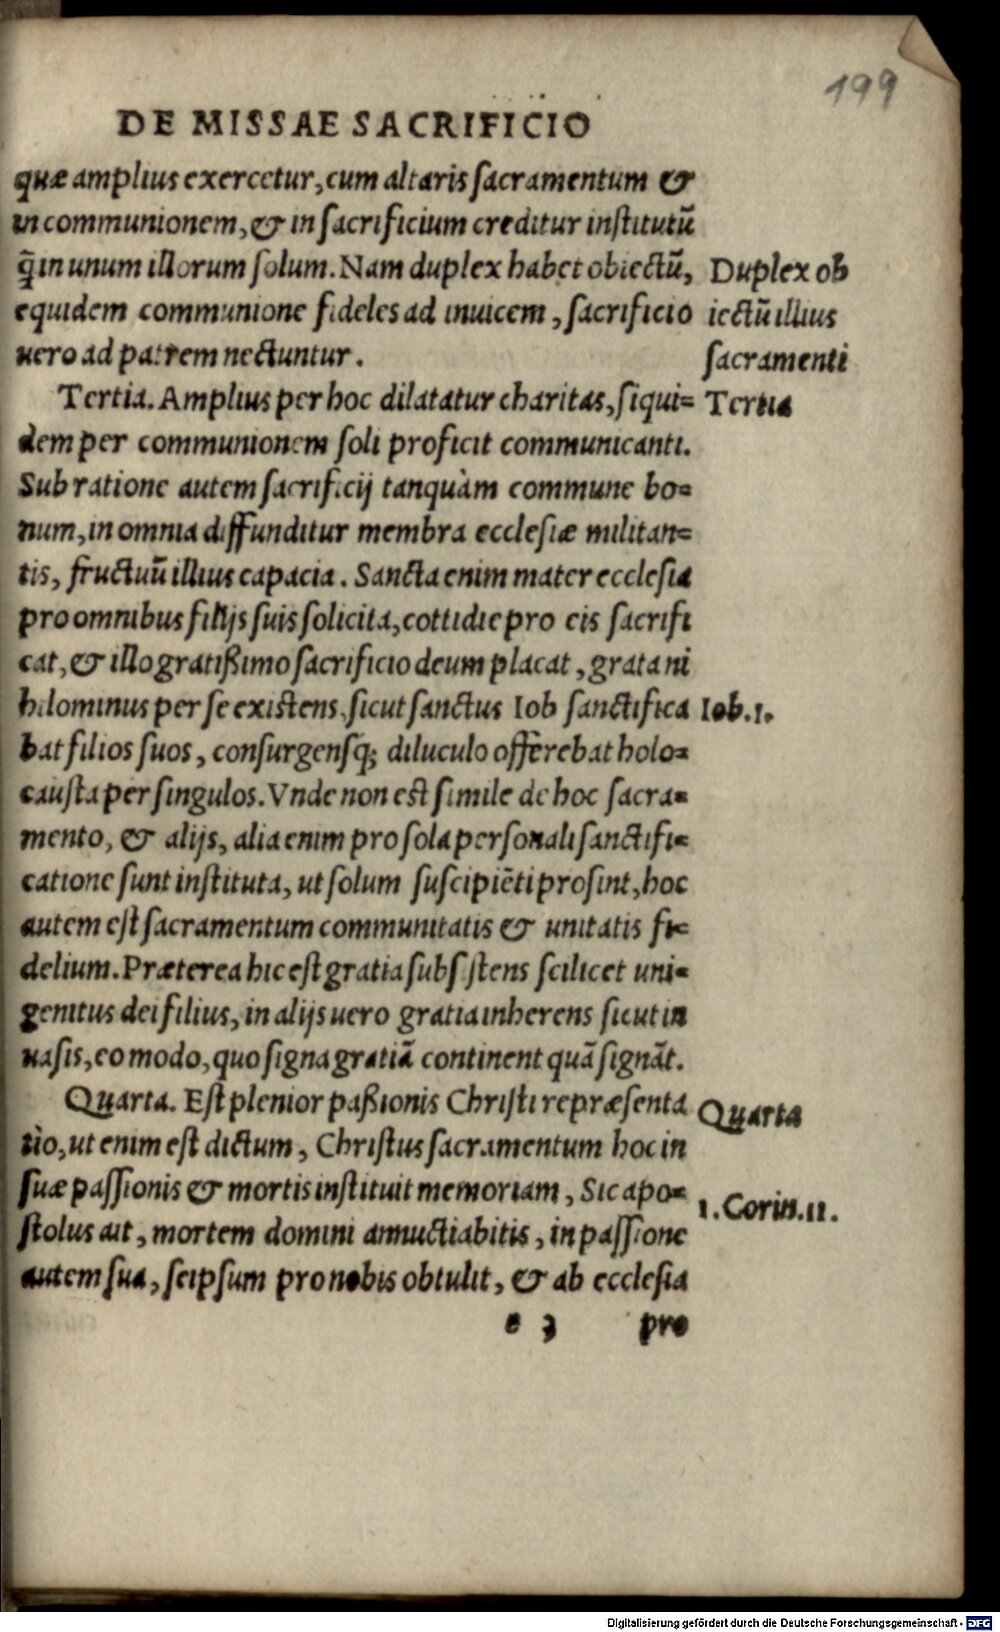 199
DE MISSAE SACRIFICIO
quæ amplius exercetur, cum altaris ſacramentum &
in communionem, & in ſacrificium creditur inſtitutū
q̄ in unum illorum ſolum. Nam duplex habet obiectū,
equidem communione fideles ad inuicem, ſacrificio
uero ad patrem nectuntur.
Tertia. Amplius per hoc dilatatur charitas, ſiqui=
dem per communionem ſoli proficit communicanti.
Sub ratione autem ſacrificij tanquàm commune bo=
num, in omnia diffunditur membra eccleſiæ militan=
tis, fructuū illius capacia. Sancta enim mater eccleſia
pro omnibus filijs ſuis ſolicita, cottidie pro eis ſacrifi
cat, & illo gratißimo ſacrificio deum placat, grata ni
hilominus per ſe exiſtens, ſicut ſanctus Iob ſanctifica
bat filios ſuos, conſurgensq; diluculo offerebat holo=
cauſta per ſingulos. Vnde non eſt ſimile de hoc ſacra=
mento, & alijs, alia enim pro ſola perſonali ſanctifi=
catione ſunt inſtituta, ut ſolum ſuſcipiēti proſint, hoc
autem eſt ſacramentum communitatis & unitatis fi=
delium. Præterea hic eſt gratia ſubſiſtens ſcilicet uni=
genitus dei filius, in alijs uero gratia inherens ſicut in
uaſis, eo modo, quo ſigna gratiā continent quā ſignāt.
Quarta. Eſt plenior paßionis Chriſti repræſenta
tio, ut enim eſt dictum, Chriſtus ſacramentum hoc in
ſuæ paſſionis & mortis inſtituit memoriam, Sic apo=
ſtolus ait, mortem domini annuctiabitis, in paſſione
autem ſua, ſeipſum pro nobis obtulit, & ab eccleſia
e 3 pro
Duplex ob
iectū illius
ſacramenti
Tertia
Iob.1.
Quarta
1.Corin.11.
Digitalisierung gefördert durch die Deutsche Forschungsgemeinschaft - DFG